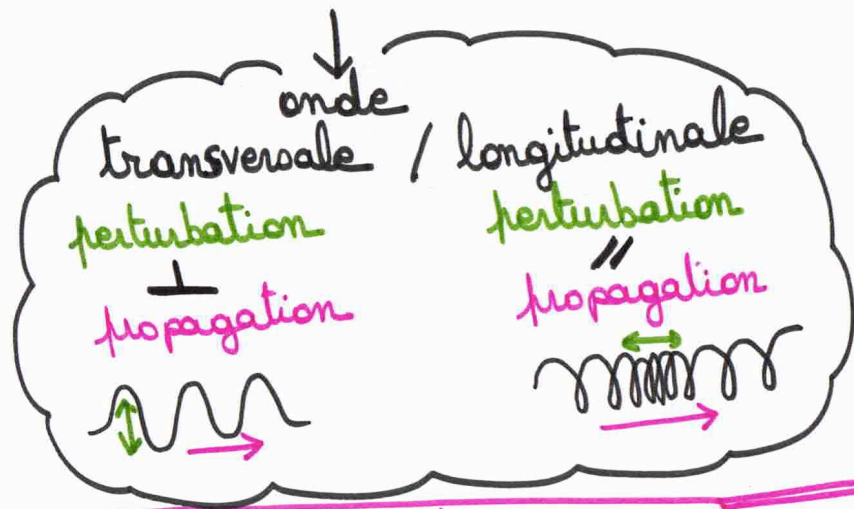 onde
transversale / longitudinale
perturbation
⊥
propagation
perturbation
//
propagation